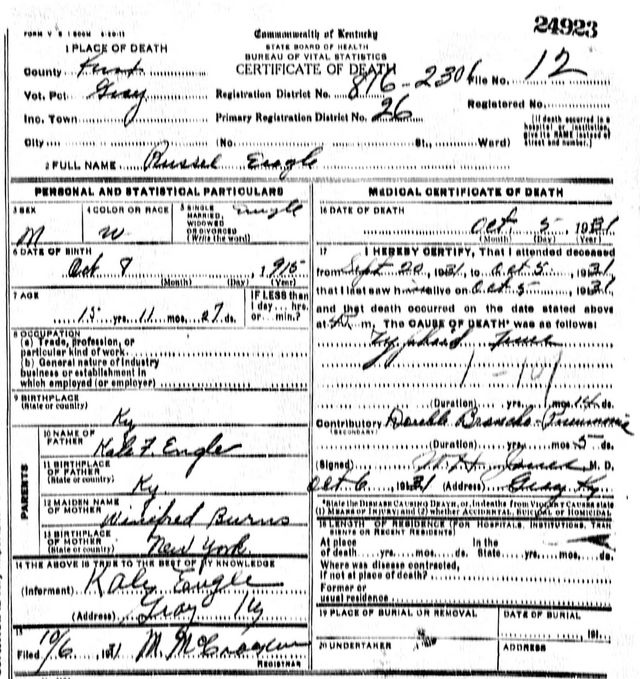 24923
FORM V S 1 500M 4-20-11
Commonwealth of Kentucky
STATE BOARD OF HEALTH
BUREAU OF VITAL STATISTICS
CERTIFICATE OF DEATH
1 PLACE OF DEATH
County Knox
Vot. Pct Gray
Inc. Town
City
Registration District No. 816-2306
File No. 12
Primary Registration District No. 26
Registered No.
(No. St., Ward)
[If death occurred in a hospital or institution, give its NAME instead of street and number.]
2 FULL NAME Russel Engle
PERSONAL AND STATISTICAL PARTICULARS
3 SEX
M
4 COLOR OR RACE
W
5 SINGLE MARRIED, WIDOWED OR DIVORCED (Write the word)
Single
6 DATE OF BIRTH
Oct 8, 1915
(Month) (Day) (Year)
7 AGE
15 yrs. 11 mos. 27 ds.
IF LESS than 1 day....hrs. or min.?
8 OCCUPATION
(a) Trade, profession, or particular kind of work
(b) General nature of industry business or establishment in which employed (or employer)
9 BIRTHPLACE
(State or country)
Ky
PARENTS
10 NAME OF FATHER
Engle
11 BIRTHPLACE OF FATHER
(State or country)
Ky
12 MAIDEN NAME OF MOTHER
Winifred Burns
13 BIRTHPLACE OF MOTHER
(State or country)
New York
14 THE ABOVE IS TRUE TO THE BEST OF MY KNOWLEDGE
(Informant) Engle
(Address) Gray Ky
15
Filed 10/6, 1931
REGISTRAR
MEDICAL CERTIFICATE OF DEATH
16 DATE OF DEATH
Oct. 5 1931
(Month) (Day) (Year)
17 I HEREBY CERTIFY, That I attended deceased
from Sept 20, 1931, to Oct 5, 1931
that I last saw him alive on Oct 5, 1931
and that death occurred on the date stated above
at m. The CAUSE OF DEATH* was as follows:
Typhoid Fever
(Duration) yrs. mos. 14 ds.
Contributory Double Broncho-Pneumonia
(SECONDARY)
(Duration) yrs. mos. 5 ds.
(Signed) Jones M. D.
Oct 6, 1931 (Address) Gray Ky
*State the DISEASE CAUSING DEATH, or, in deaths from VIOLENT CAUSES state (1) MEANS OF INJURY and (2) whether ACCIDENTAL, SUICIDAL OR HOMICIDAL
18 LENGTH OF RESIDENCE (FOR HOSPITALS, INSTITUTIONS, TRANSIENTS OR RECENT RESIDENTS)
At place of death yrs. mos. ds. In the State yrs. mos. ds.
Where was disease contracted, if not at place of death?
Former or usual residence
19 PLACE OF BURIAL OR REMOVAL
DATE OF BURIAL
, 191
20 UNDERTAKER
ADDRESS